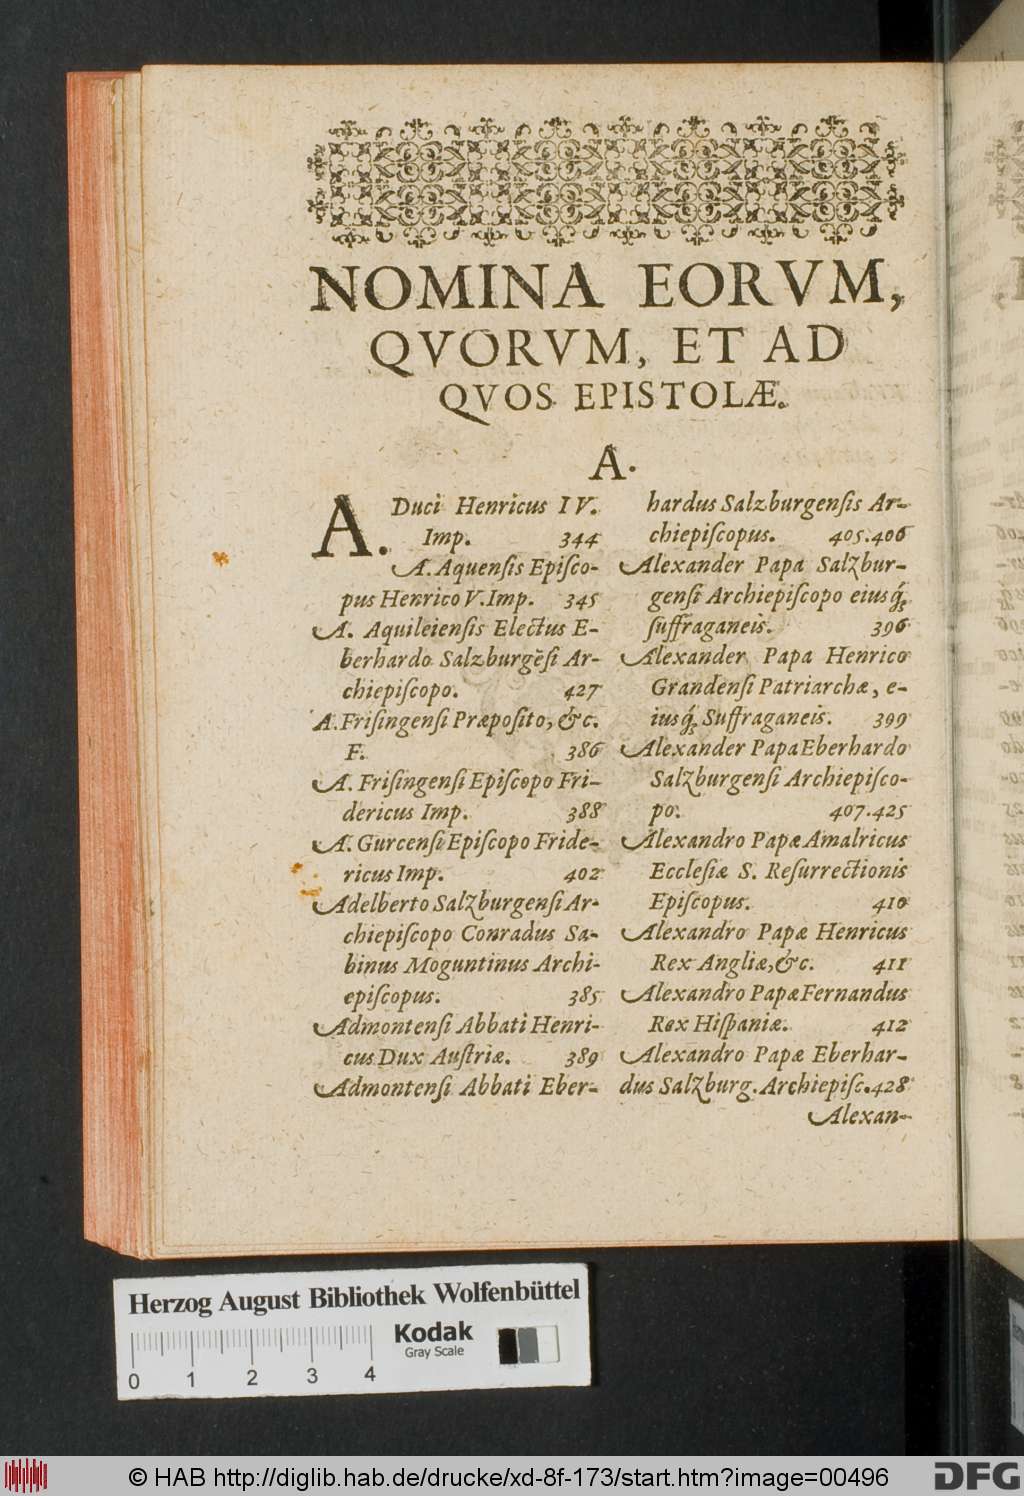 NOMINA EORVM,
QVORVM, ET AD
QVOS EPISTOLÆ.
A.
A. Duci Henricus IV.
Imp. 344
A. Aquensis Episco-
pus Henrico V. Imp. 345
A. Aquileiensis Electus E-
berhardo Salzburgẽsi Ar-
chiepiscopo. 427
A. Frisingensi Præposito, &c.
F. 386
A. Frisingensi Episcopo Fri-
dericus Imp. 388
A. Gurcensi Episcopo Fride-
ricus Imp. 402
Adelberto Salzburgensi Ar-
chiepiscopo Conradus Sa-
binus Moguntinus Archi-
episcopus. 385
Admontensi Abbati Henri-
cus Dux Austriæ. 389
Admontensi Abbati Eber-
hardus Salzburgensis Ar-
chiepiscopus. 405.406
Alexander Papa Salzbur-
gensi Archiepiscopo eiusq́;
suffraganeis. 396
Alexander Papa Henrico
Grandensi Patriarchæ, e-
iusq́; Suffraganeis. 399
Alexander Papa Eberhardo
Salzburgensi Archiepisco-
po. 407.425
Alexandro Papæ Amalricus
Ecclesiæ S. Resurrectionis
Episcopus. 410
Alexandro Papæ Henricus
Rex Angliæ, &c. 411
Alexandro Papæ Fernandus
Rex Hispaniæ. 412
Alexandro Papæ Eberhar-
dus Salzburg. Archiepisc. 428
Alexan-
Herzog August Bibliothek Wolfenbüttel
Kodak
Gray Scale
0 1 2 3 4
© HAB http://diglib.hab.de/drucke/xd-8f-173/start.htm?image=00496
DFG